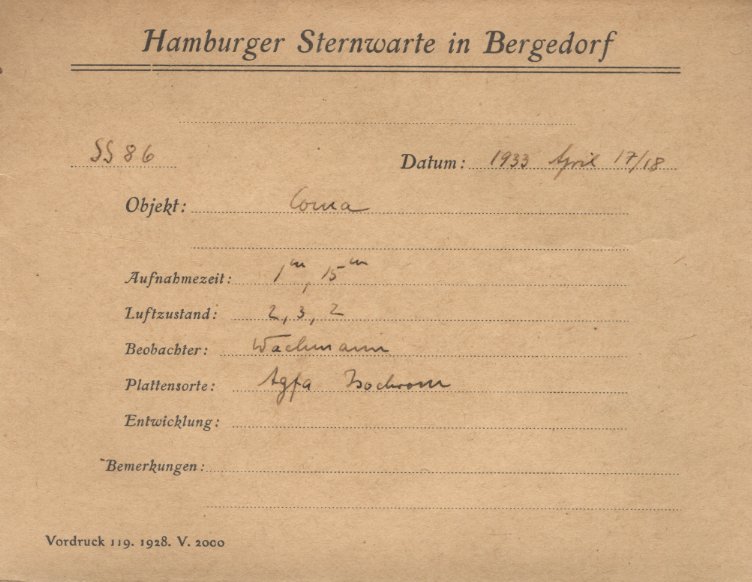 Hamburger Sternwarte in Bergedorf
SS 86 Datum: 1933 April 17/18
Objekt: Coma
Aufnahmezeit: 1ᵐ, 15ᵐ
Luftzustand: 2, 3, 2
Beobachter: Wachmann
Plattensorte: Agfa Isochrom
Entwicklung:
Bemerkungen:
Vordruck 119. 1928. V. 2000